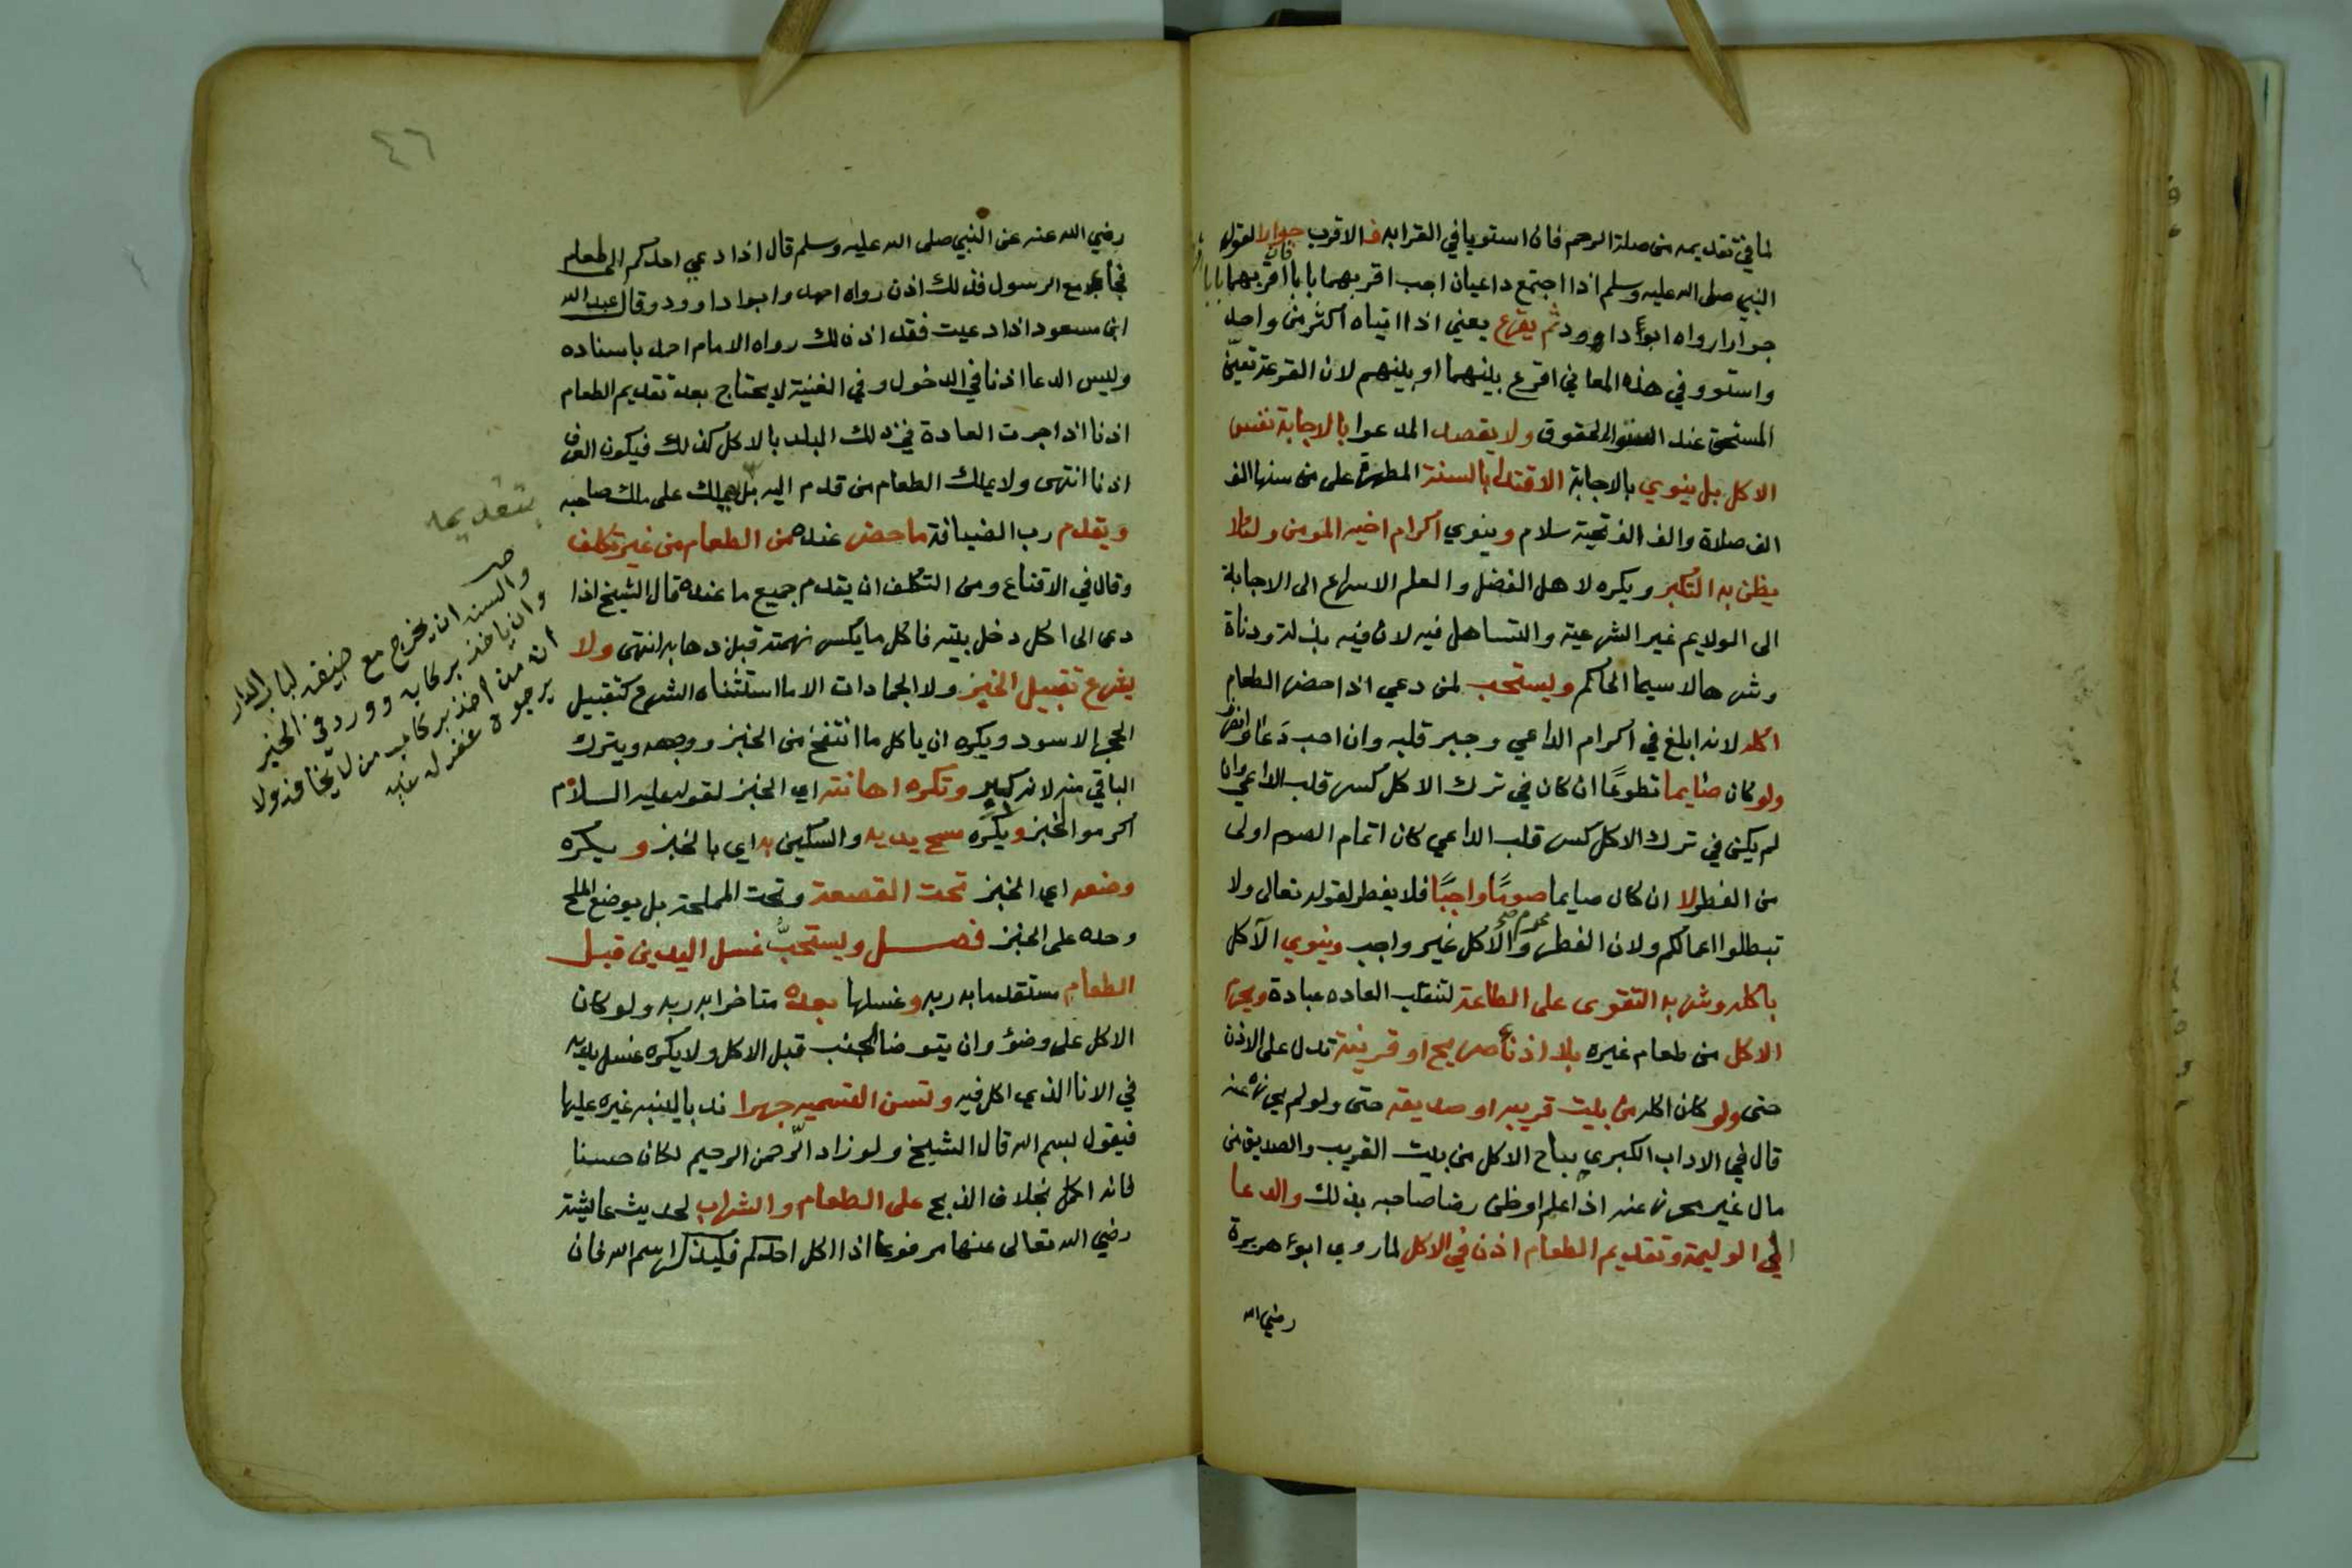 لما في تقديمه من صلة الرحم فان استويا في القرابه فالاقرب جوارا لقول
النبي صلى الله عليه وسلم اذا اجتمع داعيان اجب اقربهما بابا فان اقربهما بابا
جوارا رواه ابو داوود ثم يقرع يعني اذا اتياه اكثر من واحد
واستوو في هذه المعاني اقرع بينهما او بينهم لان القرعة تعيّن
المستحق عند الحقوق ولا يقصد المدعوا بالاجابة نفس
الاكل بل ينوي بالاجابة الاقتدا بالسنة المطهرة على من سنها الف
الف صلاة والف الف تحية سلام وينوي اكرام اخيه المومن ولئلا
يظن به التكبر ويكره لاهل الفضل والعلم الاسراع الى الاجابة
الى الولايم غير الشرعية والتساهل فيه لان فيه بذلة ودناة
وشرها لا سيما الحاكم ويستحب لمن دعي اذا حضر الطعام
اكله لانه ابلغ في اكرام الداعي وجبر قلبه وان احب دَعَا وانصرف
ولو كان صايما تطوعًا ان كان في ترك الاكل كسر قلب الداعي وان
لم يكن في ترك الاكل كسر قلب الداعي كان اتمام الصوم اولى
من الفطر لا ان كان صايما صومًا واجبًا فلا يفطر لقوله تعالى ولا
تبطلوا اعمالكم ولان الفطر محرم صح والاكل غير واجب وينوي الآكل
باكله وشربه التقوى على الطاعة لتنقلب العاده عبادة ويحرم
الاكل من طعام غيره بلا اذن صريح او قرينة تدل على الاذن
حتى ولو كان اكله من بيت قريبه او صديقه حتى ولو لم يحرزه عنه
قال في الاداب الكبرى يباح الاكل من بيت القريب والصديق من
مال غير محرز عنه اذا علم او ظن رضا صاحبه بذلك والدعا
الى الوليمة وتقديم الطعام اذن في الاكل لما روى ابو هريرة
رضي الله
٤٦
رضي الله عنه عن النبي صلى الله عليه وسلم قال اذا دعي احدكم الى طعام
فجا مع الرسول فذلك اذن رواه احمد وابوا داوود وقال عبد الله
ابن مسعود اذا دعيت فقد اذن لك رواه الامام احمد باسناده
وليس الدعا اذنا في الدخول وفي الغنية لا يحتاج بعد تقديم الطعام
اذنا اذا جرت العادة في ذلك البلد بالاكل كذلك فيكون العرف
اذنا انتهى ولا يملك الطعام من قدم اليه بل يهلك على ملك صاحبه
ويقدم رب الضيافة ما حضر عنده من الطعام من غير تكلف
وقال في الاقناع ومن التكلف ان يقدم جميع ما عنده قال الشيخ اذا
دعى الى اكل دخل بيته فاكل ما يكسر نهمته قبل ذهابه انتهى ولا
يشرع تقبيل الخبز ولا الجمادات الا ما استثناه الشرع كتقبيل
الحجر الاسود ويكره ان ياكل ما انتفخ من الخبز ووجهه ويترك
الباقي منه لانه كبر وتكره اهانته اي الخبز لقوله عليه السلام
اكرموا الخبز ويكره مسح يديه والسكين به اي بالخبز ويكره
وضعه اي الخبز تحت القصعة وتحت المملحة بل يوضع الملح
وحده على الخبز فصل ويستحبُّ غسل اليدين قبل
الطعام متقدما به ربه وغسلها بعده متاخرا به ربه ولو كان
الاكل على وضؤ وان يتوضا الجنب قبل الاكل ولا يكره غسل يديه
في الانا الذي اكل فيه وتسن التسميه جهرا ندبا لينبه غيره عليها
فيقول بسم الله قال الشيخ ولو زاد الرّحمن الرحيم لكان حسنا
فانه اكمل بخلاف الذبح على الطعام والشراب لحديث عايشة
رضي الله تعالى عنها مرفوعا اذا اكل احدكم فليذكر اسم الله فان
بتقديمه
والسنه ان يخرج مع ضيفه لباب الدار
وان ياخذ بركابه وورد في الخبر
ان من اخذ بركاب من لا يخافه ولا
يرجوه غفر له